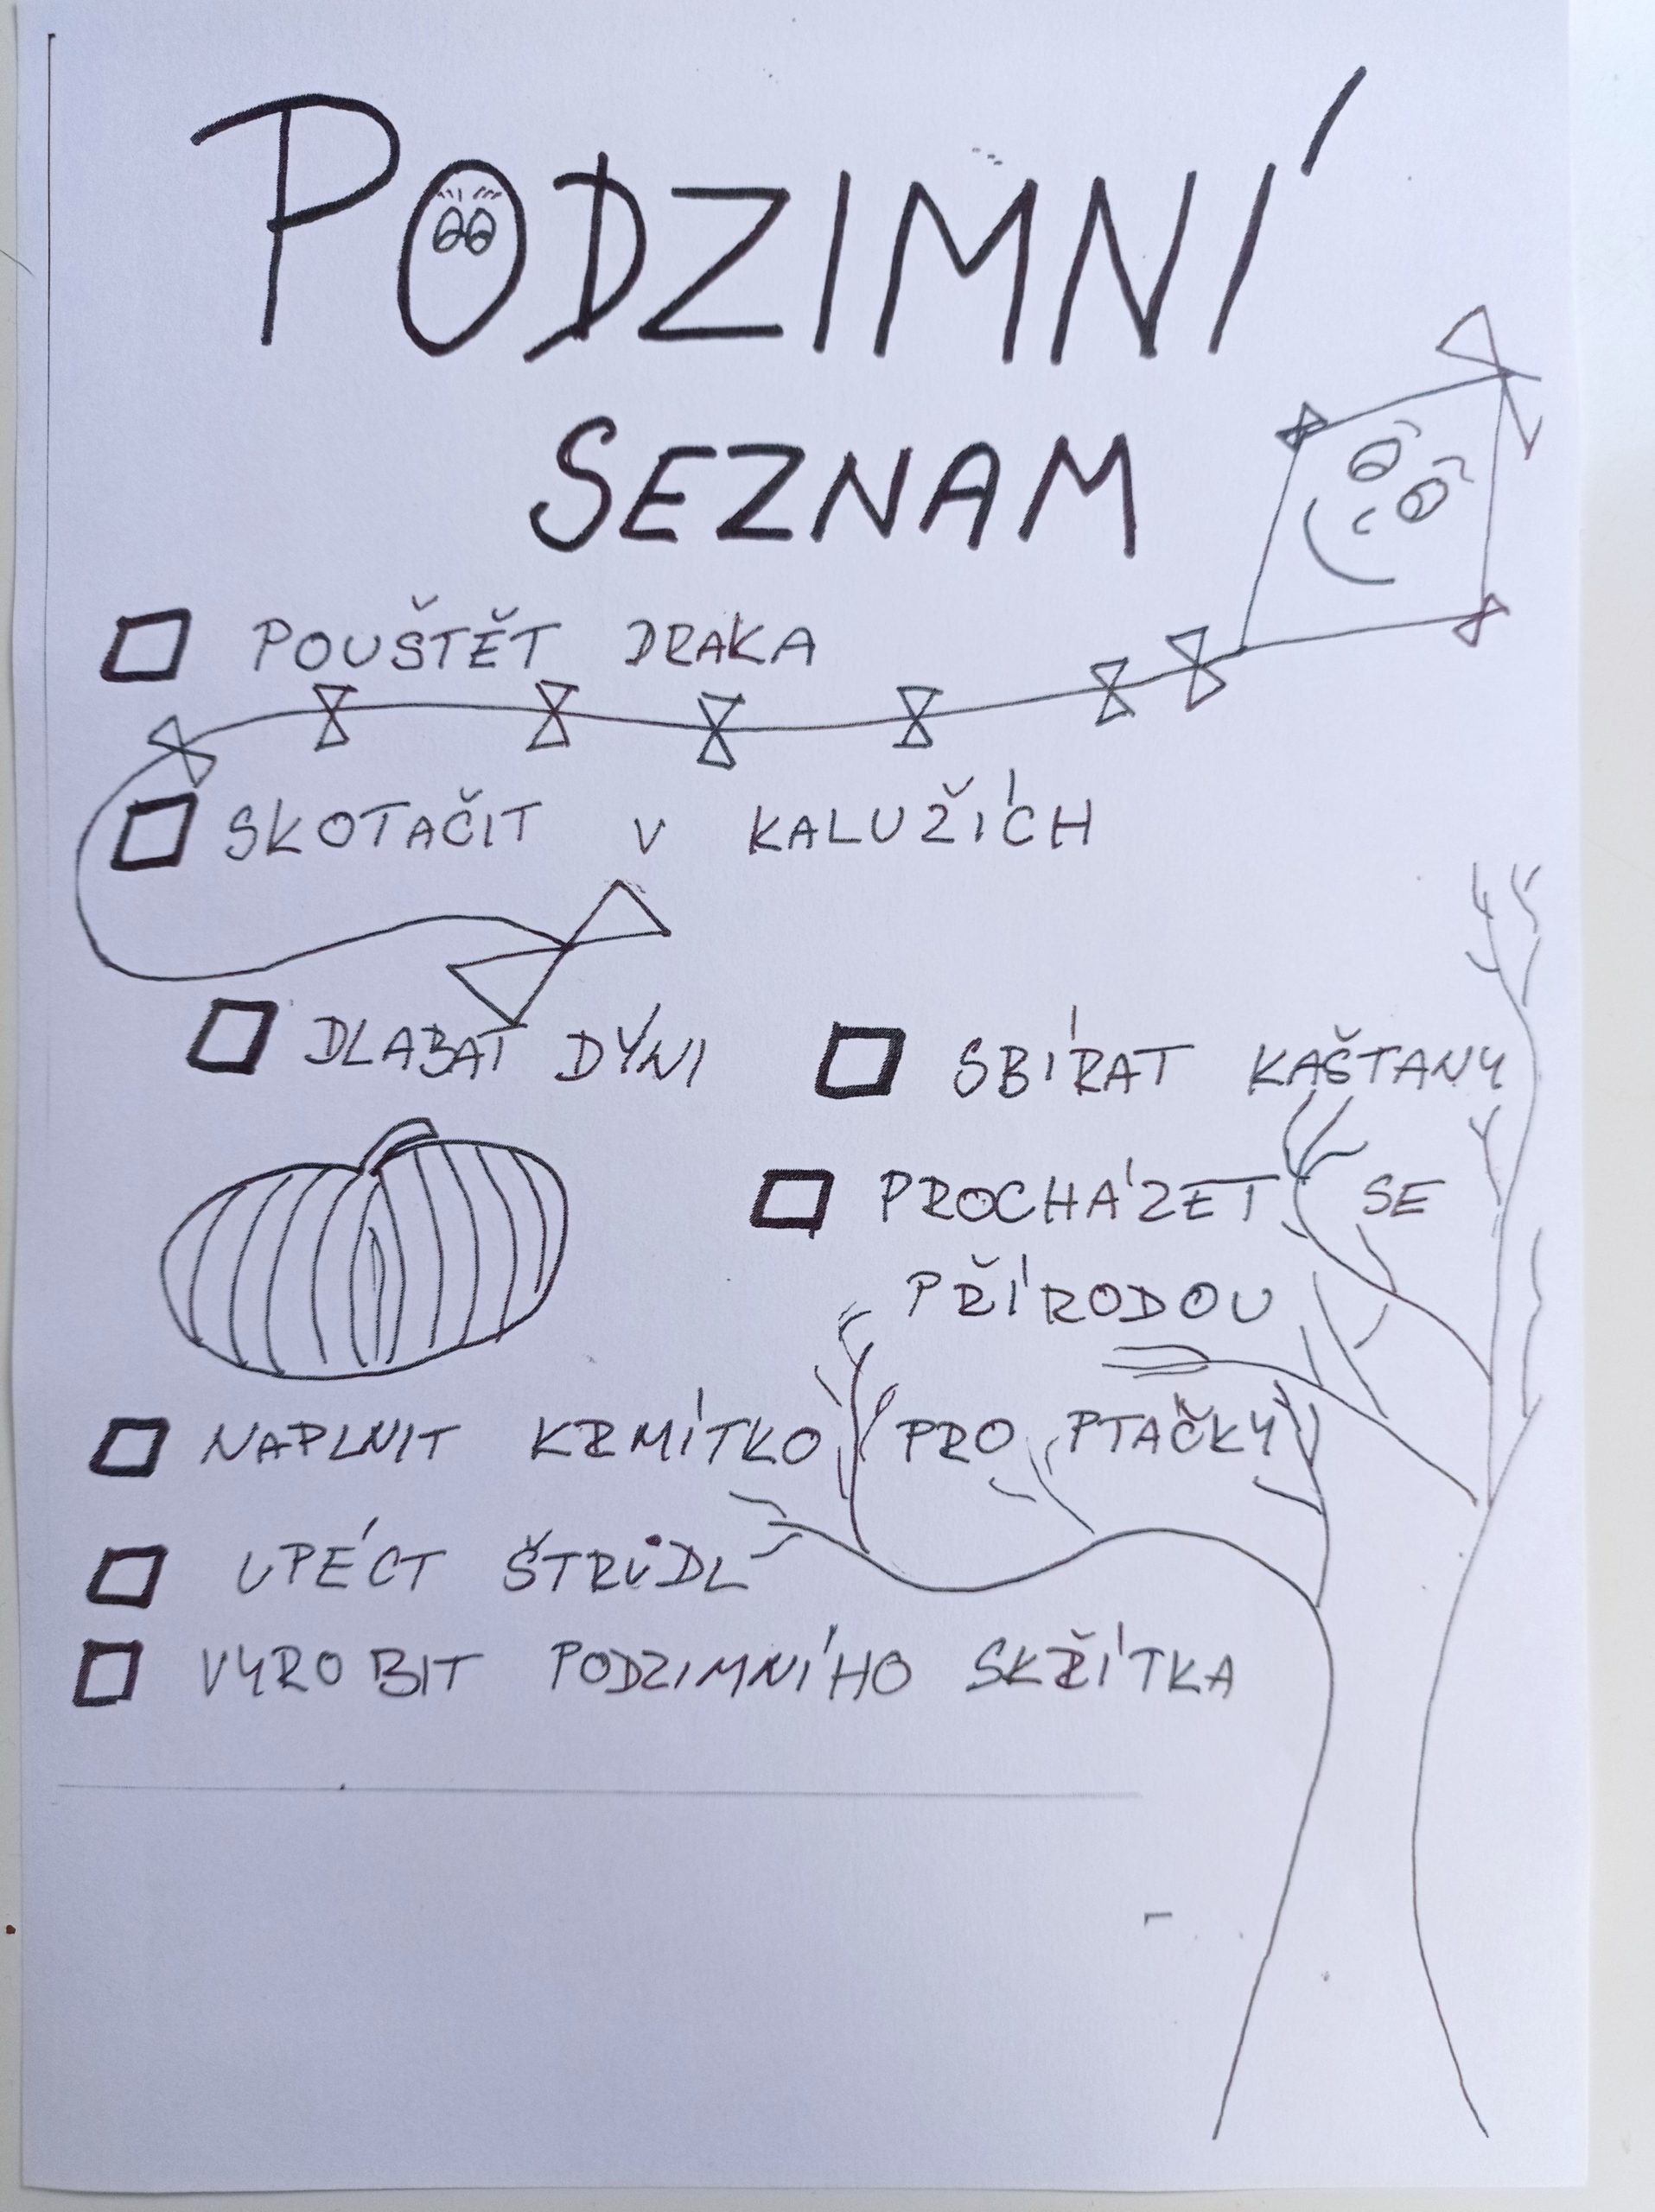 PODZIMNÍ
SEZNAM
POUŠTĚT DRAKA
SKOTAČIT V KALUŽÍCH
DLABAT DÝNI
SBÍRAT KAŠTANY
PROCHÁZET SE
PŘÍRODOU
NAPLNIT KRMÍTKO PRO PTAČKY
UPÉCT ŠTRŮDL
VYROBIT PODZIMNÍHO SKŘÍTKA